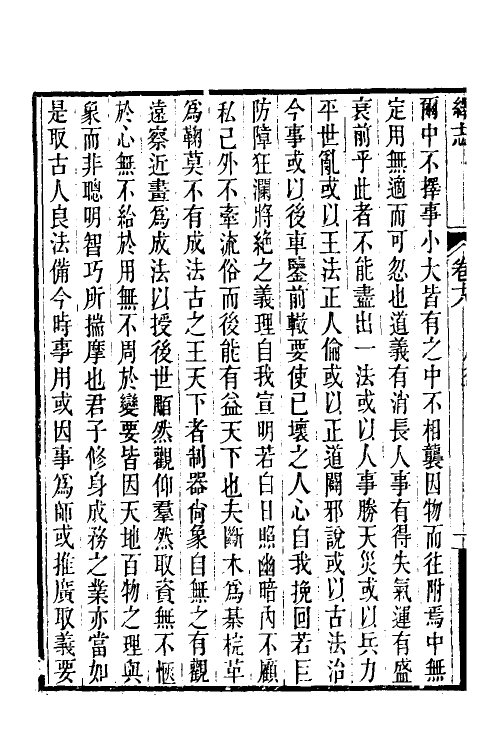 繹志 卷十八
爾中不擇事小大皆有之中不相襲因物而往附焉中無
定用無適而可忽也道義有消長人事有得失氣運有盛
衰前乎此者不能盡出一法或以人事勝天災或以兵力
平世亂或以王法正人倫或以正道闢邪說或以古法治
今事或以後車鑒前轍要使已壞之人心自我挽回若巨
防障狂瀾將絶之義理自我宣明若白日照幽暗內不顧
私己外不牽流俗而後能有益天下也夫斷木爲棊梡革
爲鞠莫不有成法古之王天下者制器尙象自無之有觀
遠察近畫爲成法以授後世顒然觀仰羣然取資無不愜
於心無不給於用無不周於變要皆因天地百物之理與
象而非聰明智巧所揣摩也君子修身成務之業亦當如
是取古人良法備今時事用或因事爲師或推廣取義要